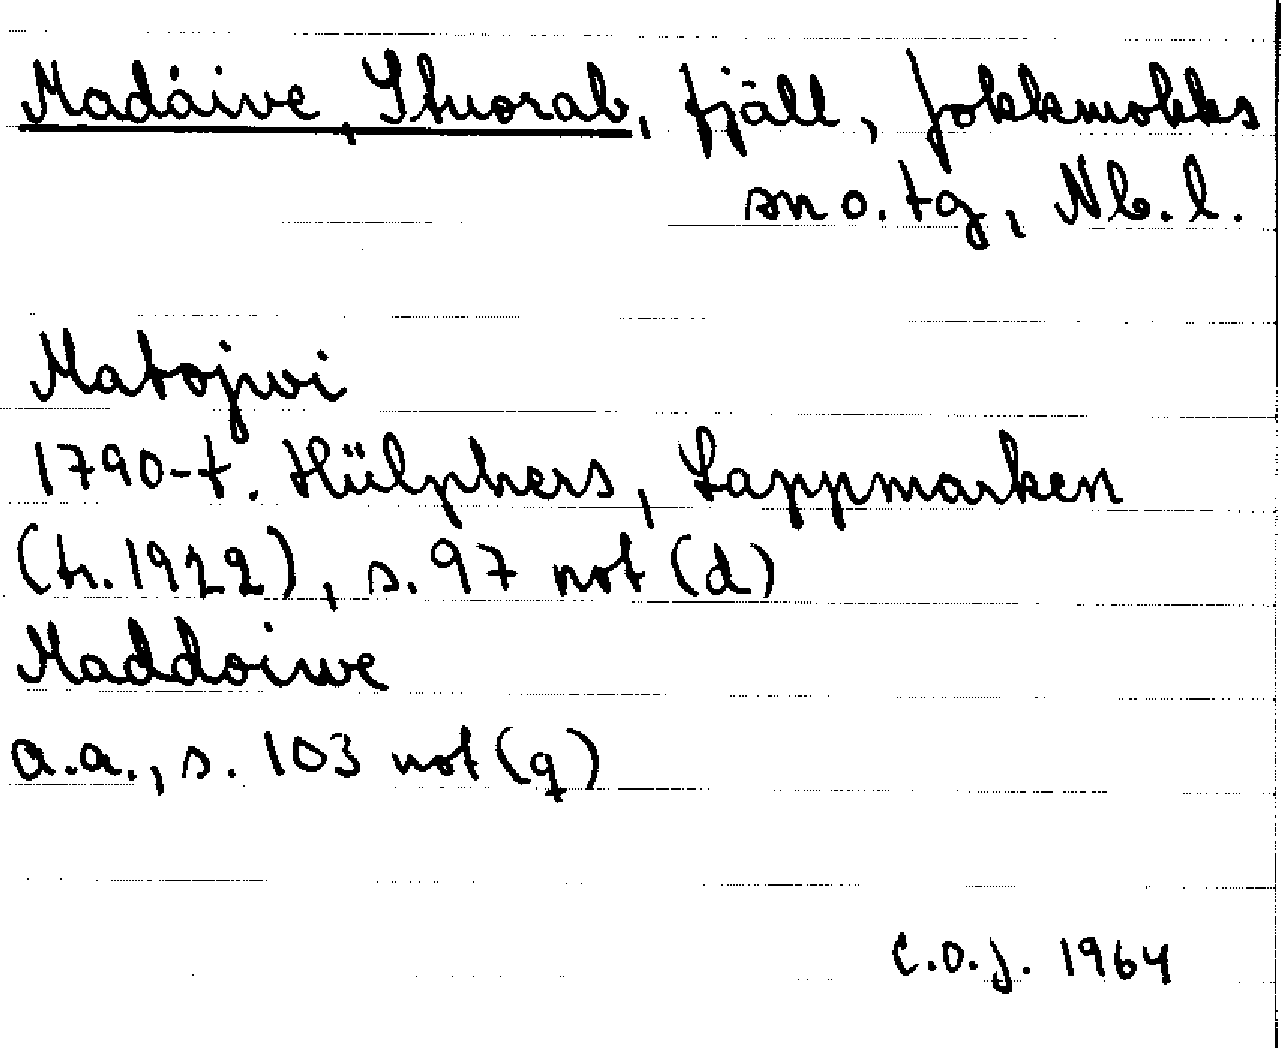 Madáive, Stuorab, fjäll, Jokkmokks
sn o. tg, Nb. l.
Matojwi
1790-t. Hülphers, Lappmarken
(h. 1922), s. 97 not (d)
Maddoiwe
a.a., s. 103 not (q)
C.O.J. 1964